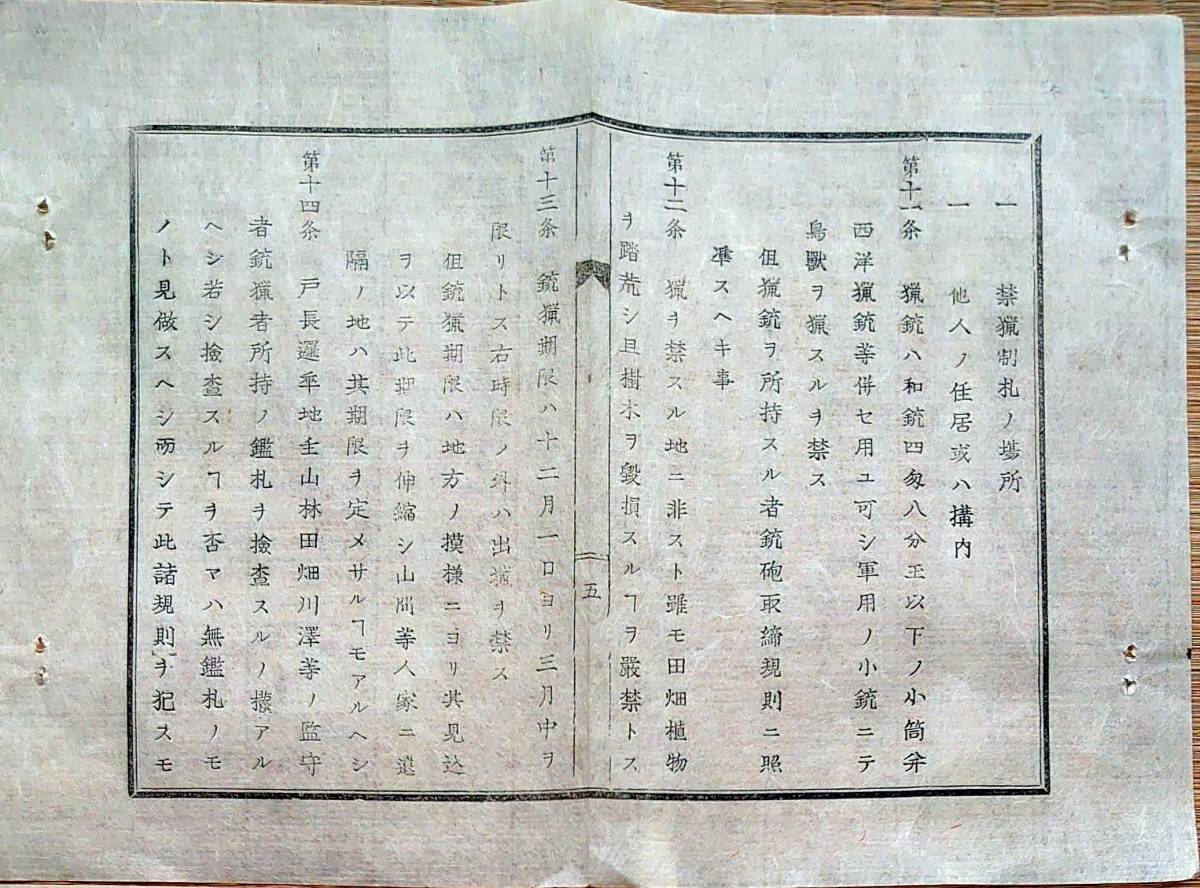 一　禁猟制札ノ場所
一　他人ノ住居或ハ搆内
第十一条　猟銃ハ和銃四匁八分玉以下ノ小筒并
西洋猟銃等併セ用ユ可シ軍用ノ小銃ニテ
鳥獸ヲ猟スルヲ禁ス
但猟銃ヲ所持スル者銃砲取締規則ニ照
準スヘキ事
第十二条　猟ヲ禁スル地ニ非スト雖モ田畑植物
ヲ踏荒シ且樹木ヲ毀損スルヿヲ嚴禁トス
五
第十三条　銃猟期限ハ十二月一日ヨリ三月中ヲ
限リトス右時限ノ外ハ出猟ヲ禁ス
但銃猟期限ハ地方ノ摸様ニヨリ其見込
ヲ以テ此期限ヲ伸縮シ山間等人家ニ遠
隔ノ地ハ其期限ヲ定メサルヿモアルヘシ
第十四条　戸長邏卒地主山林田畑川澤等ノ監守
者銃猟者所持ノ鑑札ヲ撿査スルノ權アル
ヘシ若シ撿査スルヿヲ否マハ無鑑札ノモ
ノト見做スヘシ而シテ此諸規則ヲ犯スモ